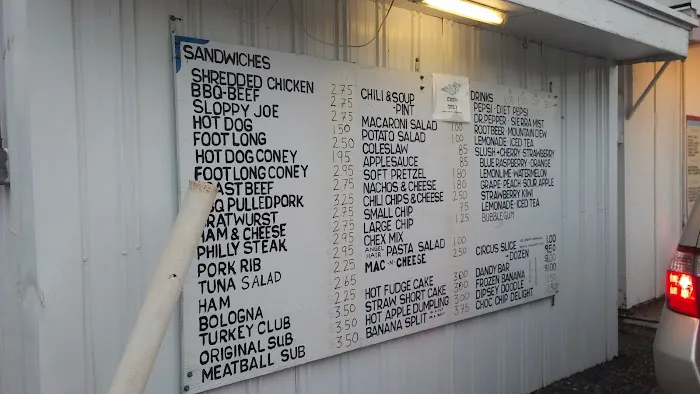 SANDWICHES
SHREDDED CHICKEN 2.75
BBQ-BEEF 2.75
SLOPPY JOE 2.75
HOT DOG 1.50
FOOT LONG 2.50
HOT DOG CONEY 1.95
FOOT LONG CONEY 2.95
AST BEEF 2.75
Q PULLEDPORK 3.25
RATWURST 2.75
HAM & CHEESE 2.95
PHILLY STEAK 2.95
PORK RIB 2.95
TUNA SALAD 2.25
HAM 2.65
BOLOGNA 2.25
TURKEY CLUB 3.50
ORIGINAL SUB 3.50
MEATBALL SUB 3.50
CHILI & SOUP
-PINT
MACARONI SALAD 1.00
POTATO SALAD 1.00
COLESLAW 85
APPLESAUCE 85
SOFT PRETZEL 1.80
NACHOS & CHEESE 1.80
CHILI CHIPS & CHEESE 2.50
SMALL CHIP 75
LARGE CHIP 1.25
CHEX MIX
ANGEL HAIR PASTA SALAD 1.00
MAC -N- CHEESE 2.50
HOT FUDGE CAKE 3.00
STRAW SHORT CAKE 3.00
HOT APPLE DUMPLING 3.00
BANANA SPLIT 3.75
DRINKS
PEPSI - DIET PEPSI
DR.PEPPER - SIERRA MIST
ROOTBEER MOUNTAIN DEW
LEMONADE ICED TEA
SLUSH - CHERRY - STRAWBERRY
BLUE RASPBERRY - ORANGE
LEMONLIME WATERMELON
GRAPE - PEACH - SOUR APPLE
STRAWBERRY KIWI
LEMONADE - ICED TEA
BUBBLEGUM
CIRCUS SLICE 1.00
+ DOZEN 9.50
DANDY BAR
FROZEN BANANA
DIPSEY DOODLE
CHOC CHIP DELIGHT